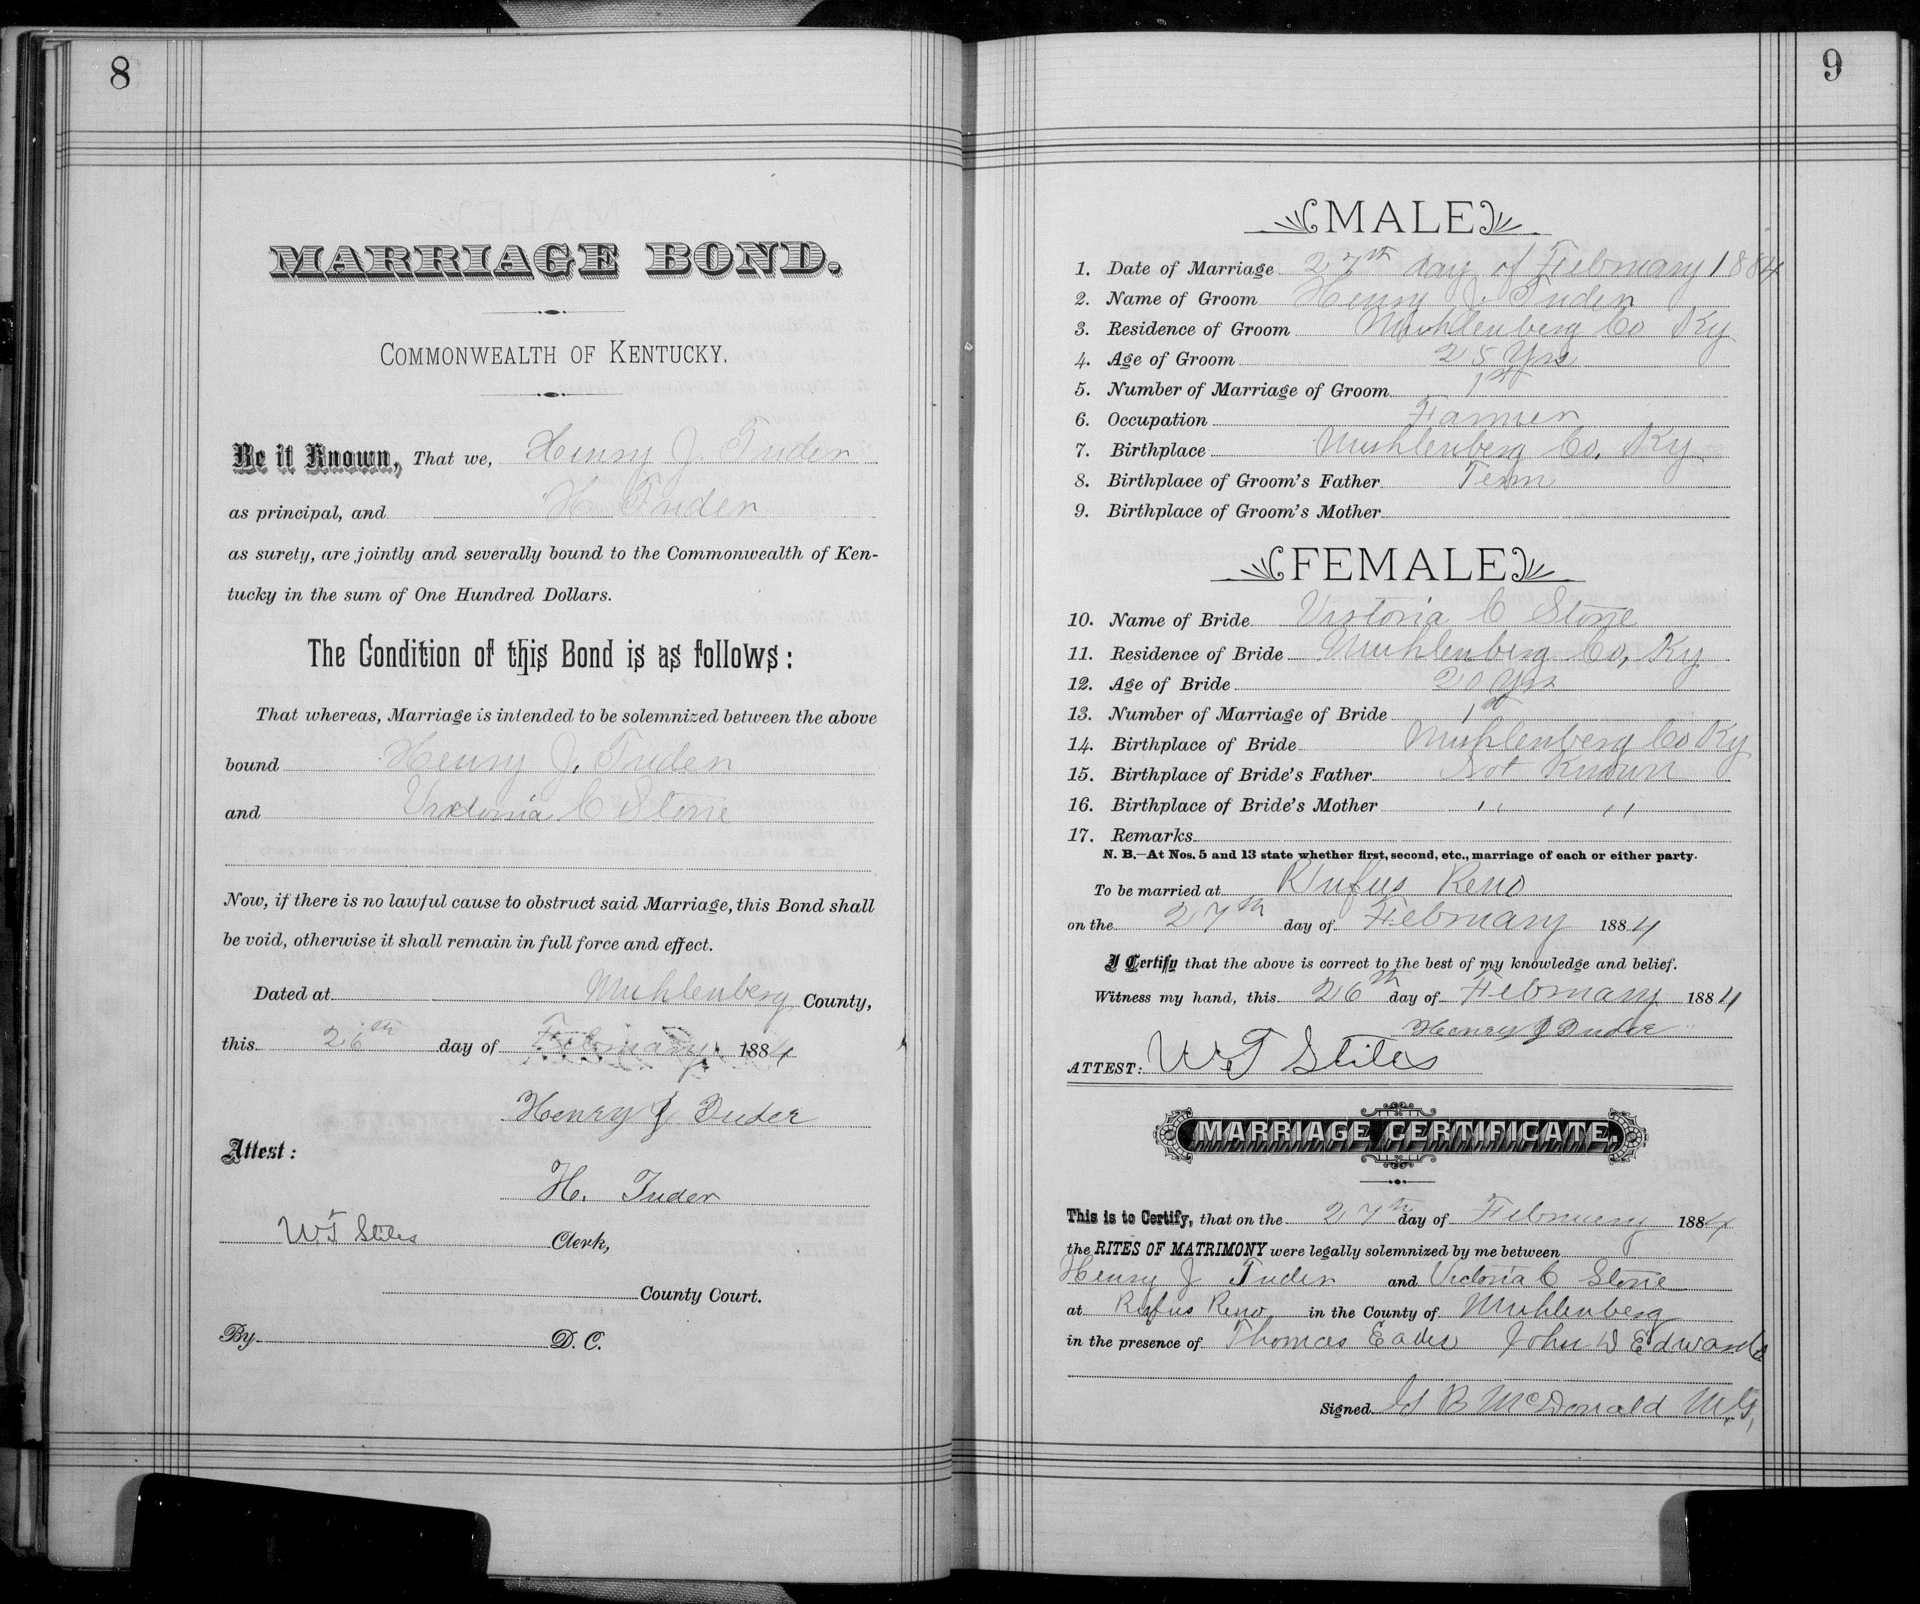 8
MARRIAGE BOND.
COMMONWEALTH OF KENTUCKY.
Be it Known, That we, Henry J. Tuder
as principal, and H. Tuder
as surety, are jointly and severally bound to the Commonwealth of Ken-
tucky in the sum of One Hundred Dollars.
The Condition of this Bond is as follows:
That whereas, Marriage is intended to be solemnized between the above
bound Henry J. Tuder
and Victoria C Stone
Now, if there is no lawful cause to obstruct said Marriage, this Bond shall
be void, otherwise it shall remain in full force and effect.
Dated at Muhlenberg County,
this 26th day of February 1884
Henry J Tuder
Attest:
H. Tuder
WT Stiles Clerk,
County Court.
By D. C.
9
MALE
1. Date of Marriage 27th day of February 1884
2. Name of Groom Henry J. Tuder
3. Residence of Groom Muhlenberg Co Ky
4. Age of Groom 25 Yrs
5. Number of Marriage of Groom 1st
6. Occupation Farmer
7. Birthplace Muhlenberg Co. Ky
8. Birthplace of Groom's Father Tenn
9. Birthplace of Groom's Mother
FEMALE
10. Name of Bride Victoria C Stone
11. Residence of Bride Muhlenberg Co, Ky
12. Age of Bride 20 Yrs
13. Number of Marriage of Bride 1st
14. Birthplace of Bride Muhlenberg Co Ky
15. Birthplace of Bride's Father Not Known
16. Birthplace of Bride's Mother " "
17. Remarks
N. B.—At Nos. 5 and 13 state whether first, second, etc., marriage of each or either party.
To be married at Rufus Reno
on the 27th day of February 1884
I Certify that the above is correct to the best of my knowledge and belief.
Witness my hand, this 26th day of February 1884
Henry J Tuder
ATTEST: W.T Stiles
MARRIAGE CERTIFICATE.
This is to Certify, that on the 27th day of February 1884
the RITES OF MATRIMONY were legally solemnized by me between
Henry J Tuder and Victoria C Stone
at Rufus Reno in the County of Muhlenberg
in the presence of Thomas Eades John D Edwards
Signed B McDonald M.G,